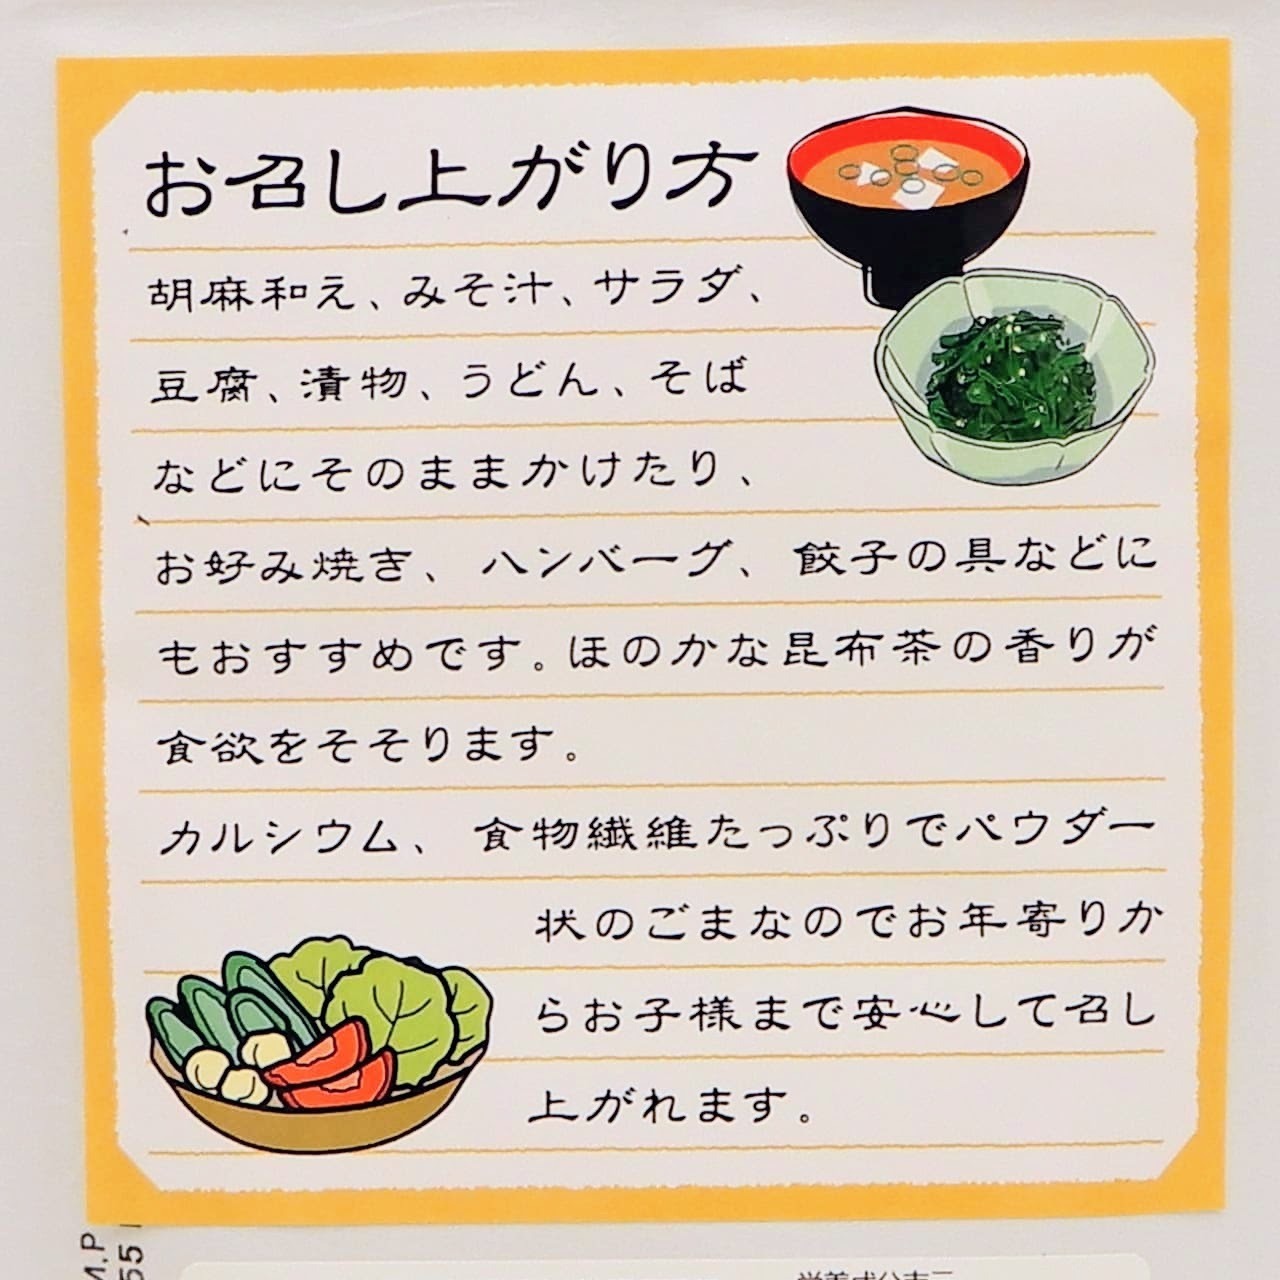 お召し上がり方
胡麻和え、みそ汁、サラダ、
豆腐、漬物、うどん、そば
などにそのままかけたり、
お好み焼き、ハンバーグ、餃子の具などに
もおすすめです。ほのかな昆布茶の香りが
食欲をそそります。
カルシウム、食物繊維たっぷりでパウダー
状のごまなのでお年寄りか
らお子様まで安心して召し
上がれます。
M.P
55